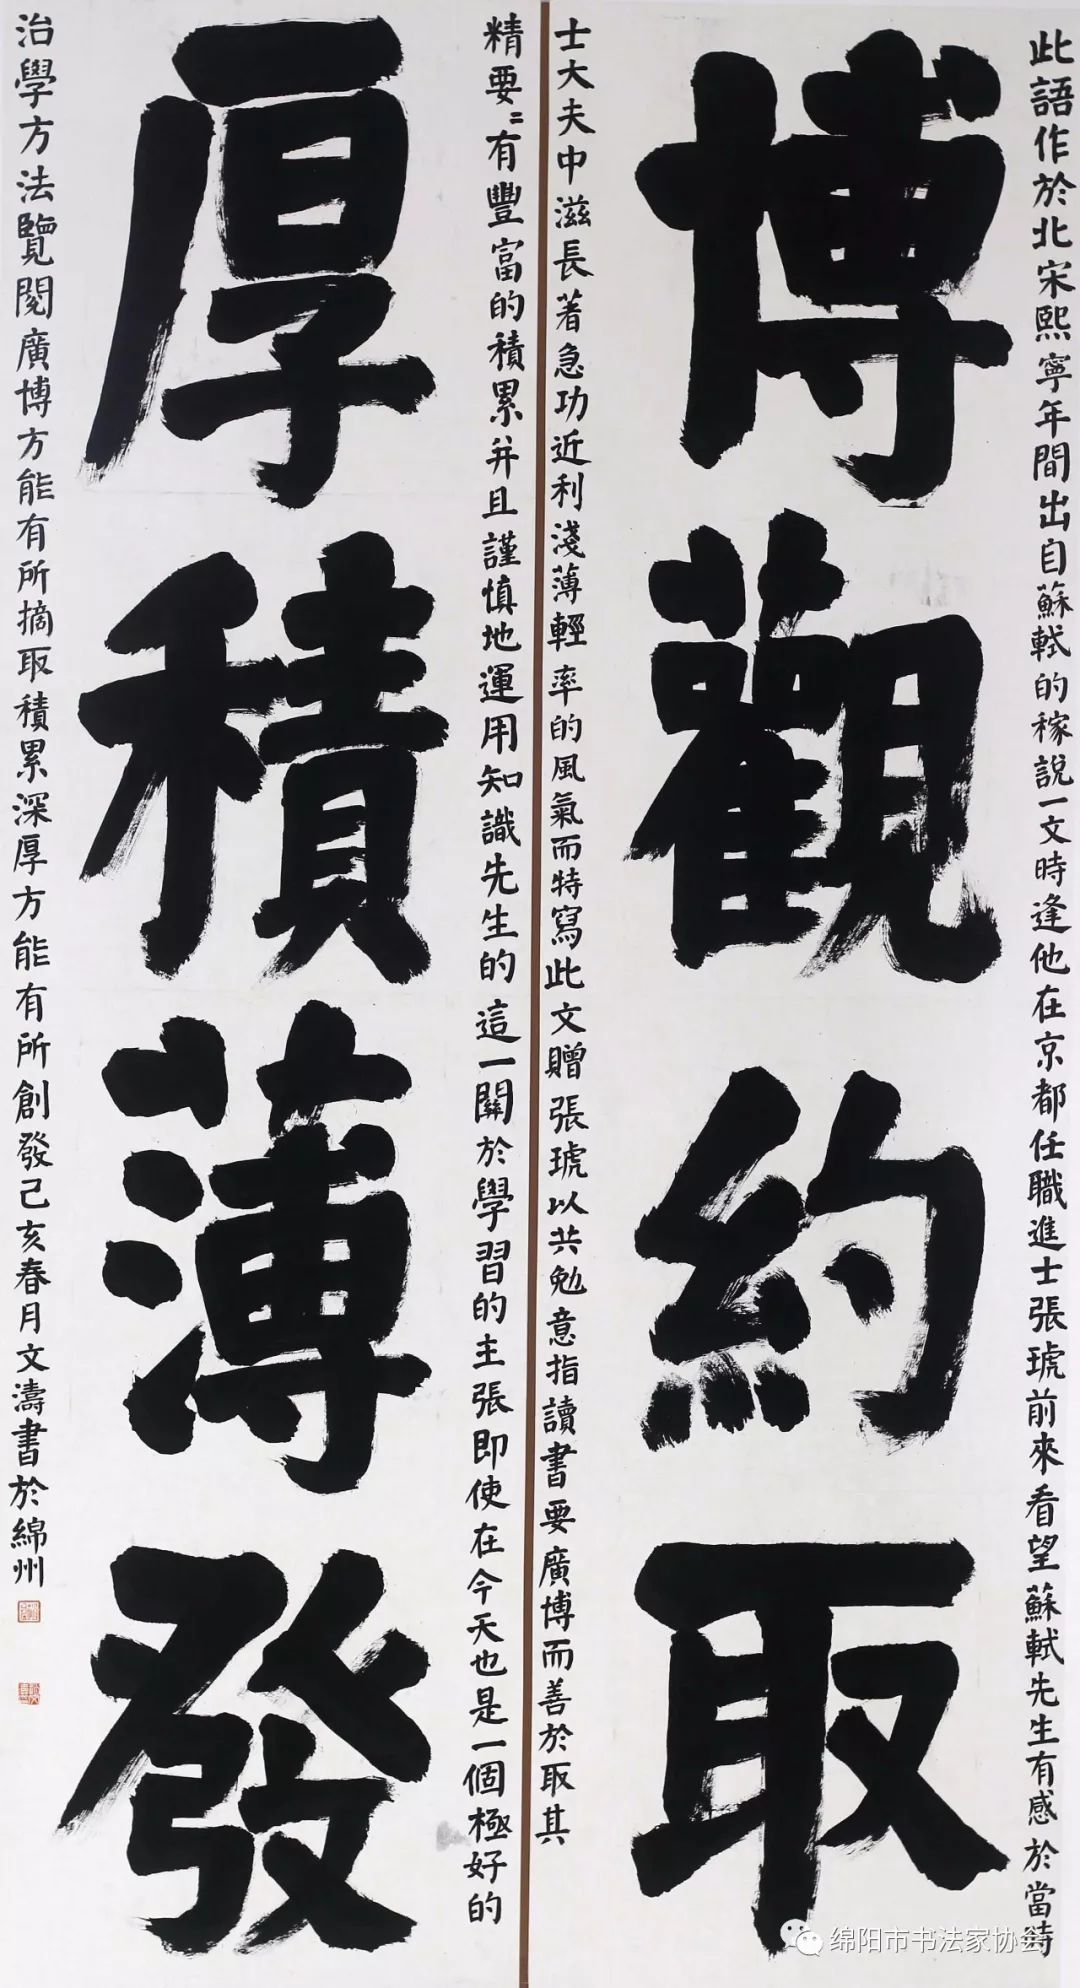 博觀約取
厚積薄發
此語作於北宋熙寧年間出自蘇軾的稼說一文時逢他在京都任職進士張琥前來看望蘇軾先生有感於當時
士大夫中滋長著急功近利淺薄輕率的風氣而特寫此文贈張琥以共勉意指讀書要廣博而善於取其
精要〻有豐富的積累并且謹慎地運用知識先生的這一關於學習的主張即使在今天也是一個極好的
治學方法覽閱廣博方能有所摘取積累深厚方能有所創發己亥春月文濤書於綿州
绵阳市书法家协会